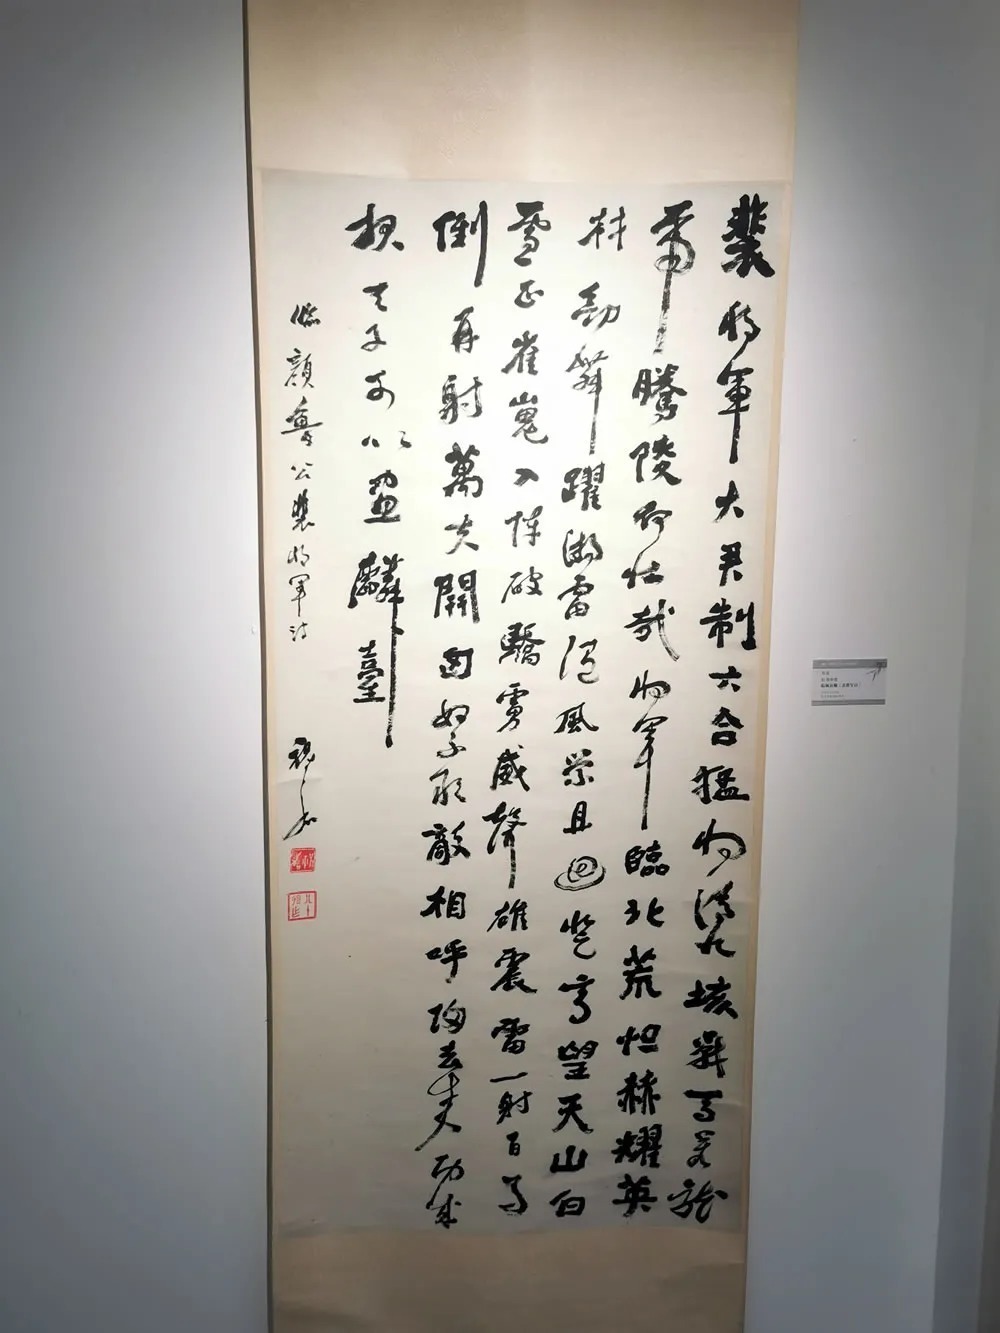 裴将軍大君制六合猛将清九垓戰馬若龍
虎騰陵何壮哉将軍臨北荒烜赫耀英
材劍舞躍游雷随風縈且回登高望天山白
雪正崔嵬入陣破驕虜威聲雄震雷一射百馬
倒再射萬夫開匈奴不敢敵相呼歸去来功成
報天子可以畫麟臺
臨顏魯公裴将軍诗